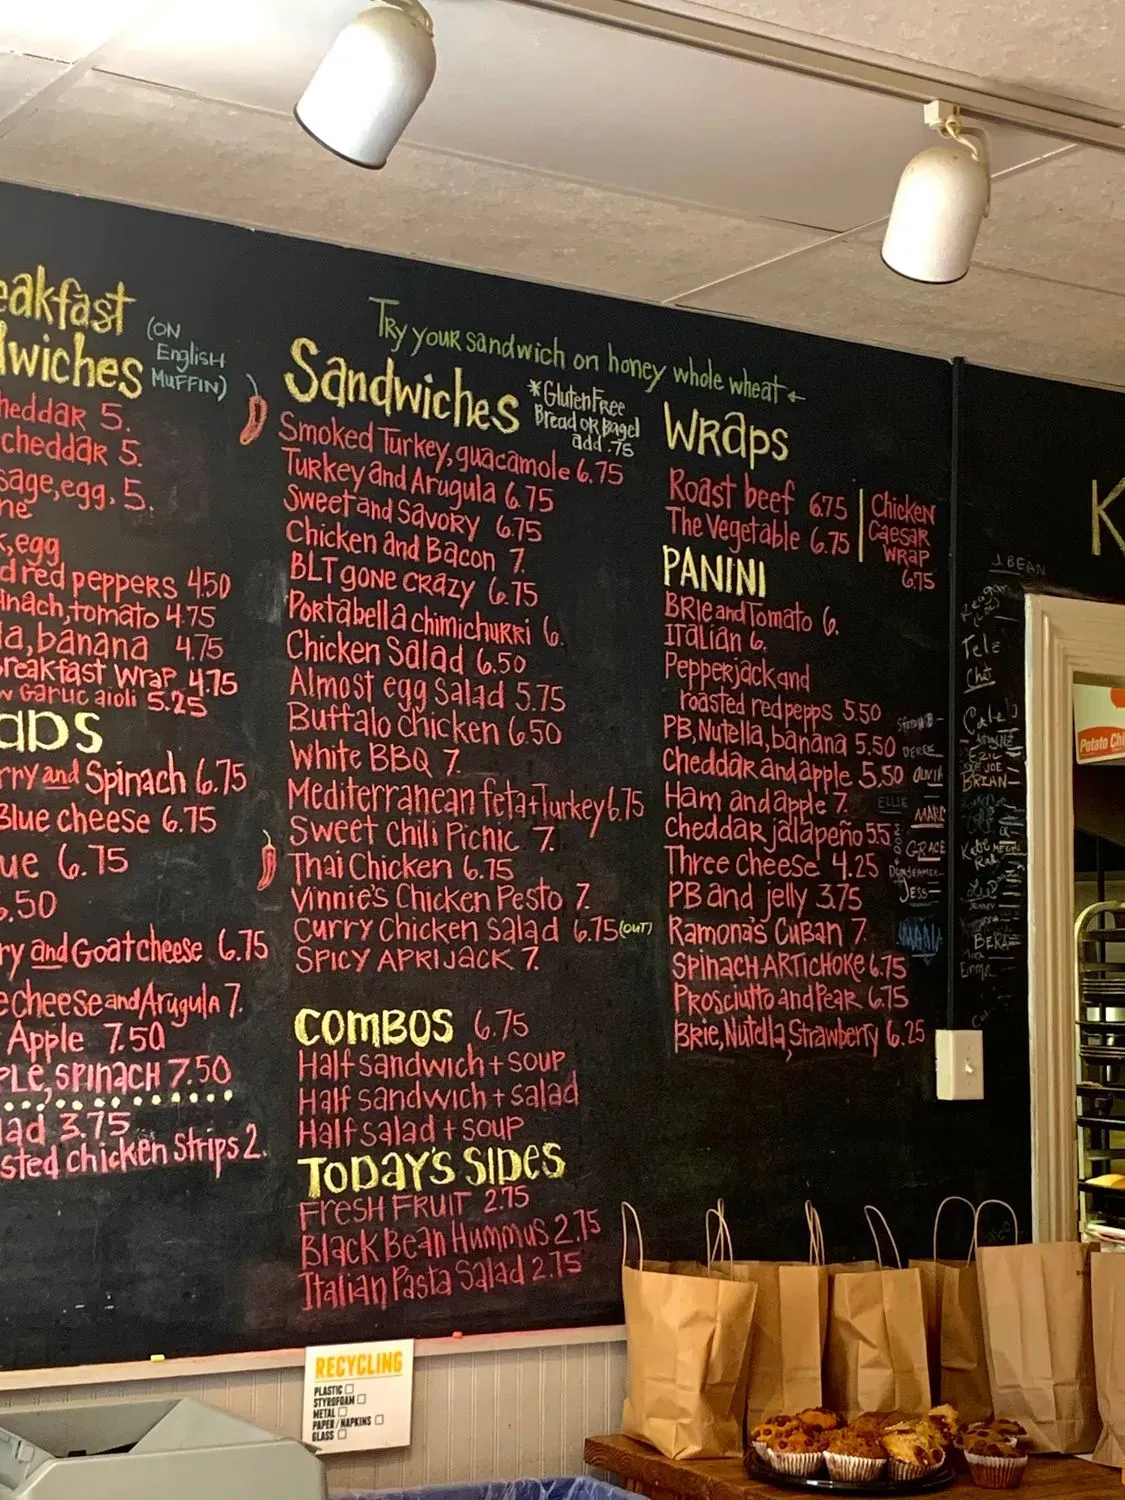 eakfast
wiches
(ON
English
MUFFIN)
heddar 5.
cheddar 5.
sage, egg, 5.
ne
, egg
d red peppers 4.50
inach, tomato 4.75
a, banana 4.75
reakfast wrap 4.75
w garlic aioli 5.25
ads
rry and Spinach 6.75
Blue cheese 6.75
ue 6.75
.50
ry and Goat cheese 6.75
e cheese and Arugula 7.
Apple 7.50
ple, spinach 7.50
lad 3.75
sted chicken strips 2.
Try your sandwich on honey whole wheat
Sandwiches
*Gluten Free
Bread or Bagel
add .75
Smoked Turkey, guacamole 6.75
Turkey and Arugula 6.75
Sweet and Savory 6.75
Chicken and Bacon 7.
BLT gone crazy 6.75
Portabella chimichurri 6.
Chicken Salad 6.50
Almost egg Salad 5.75
Buffalo chicken 6.50
White BBQ 7.
Mediterranean feta+Turkey 6.75
Sweet Chili Picnic 7.
Thai Chicken 6.75
Vinnie's Chicken Pesto 7.
Curry Chicken Salad 6.75 (OUT)
Spicy Aprijack 7.
COMBOS 6.75
Half sandwich + soup
Half sandwich + salad
Half salad + soup
TODAY'S SIDES
Fresh Fruit 2.75
Black Bean Hummus 2.75
Italian Pasta Salad 2.75
Wraps
Roast beef 6.75
The Vegetable 6.75
Chicken
Caesar
Wrap
6.75
PANINI
Brie and Tomato 6.
Italian 6.
Pepperjack and
roasted red pepps 5.50
PB, Nutella, banana 5.50
Cheddar and apple 5.50
Ham and apple 7.
Cheddar jalapeño 5.5
Three cheese 4.25
PB and jelly 3.75
Ramona's Cuban 7.
Spinach Artichoke 6.75
Prosciutto and Pear 6.75
Brie, Nutella, Strawberry 6.25
K
J. BEAN
Reagan
Tele
Chet
Caleb
JOE
BRIAN
DEREK
OLIVIA
ELLIE
MARC
GRACE
JESS
Emma
Potato Chi
RECYCLING
PLASTIC
STYROFOAM
METAL
PAPER/NAPKINS
GLASS